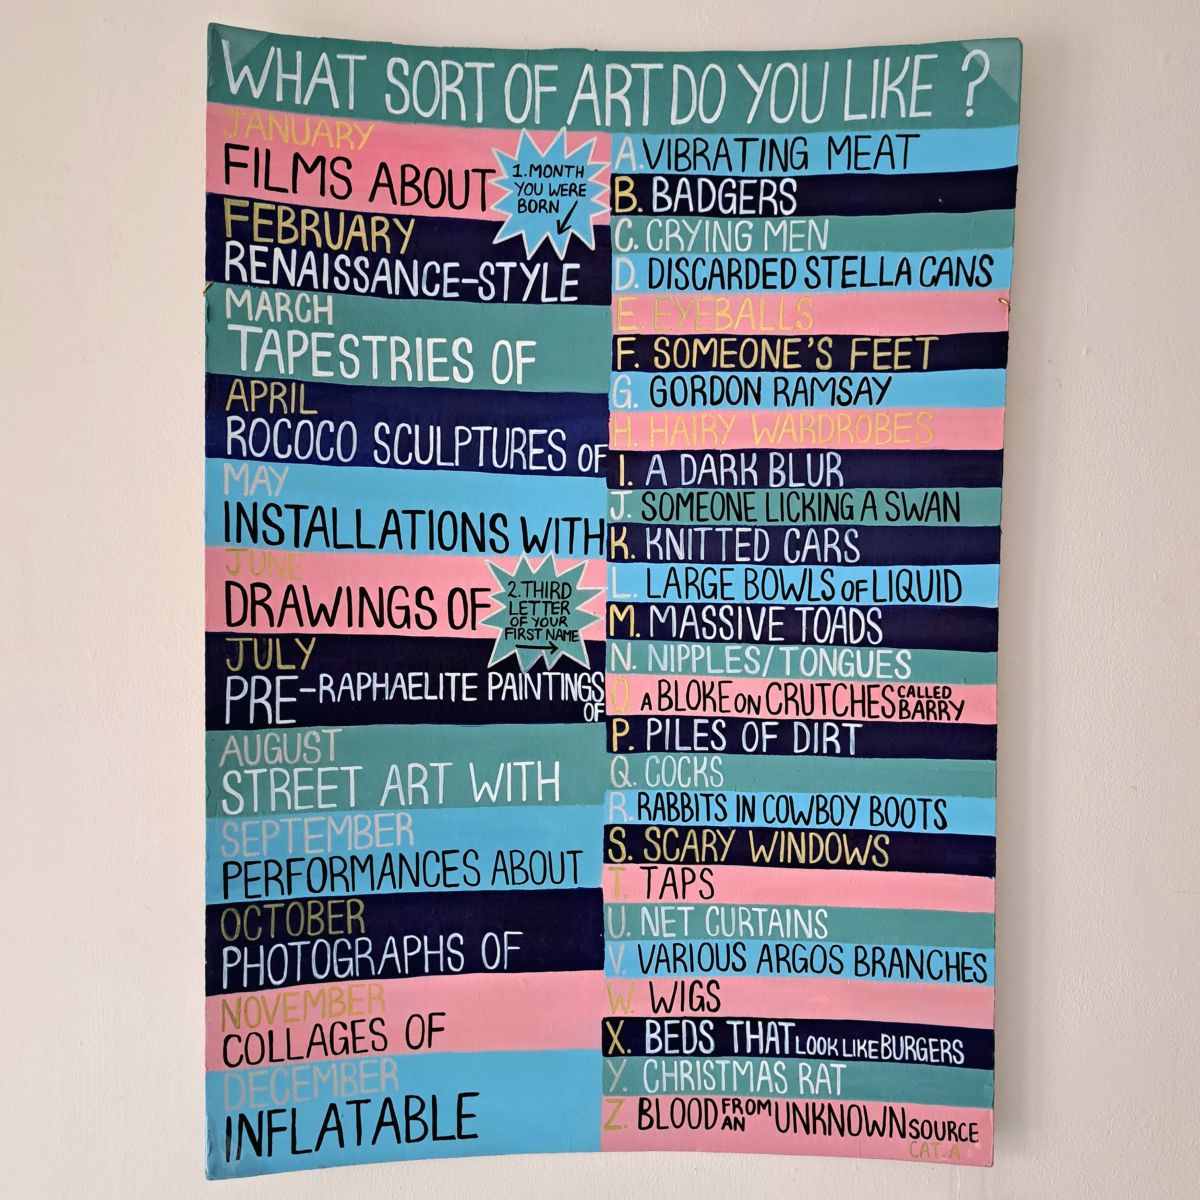 WHAT SORT OF ART DO YOU LIKE ?
JANUARY
FILMS ABOUT
1. MONTH
YOU WERE
BORN
FEBRUARY
RENAISSANCE-STYLE
MARCH
TAPESTRIES OF
APRIL
ROCOCO SCULPTURES OF
MAY
INSTALLATIONS WITH
JUNE
DRAWINGS OF
2. THIRD
LETTER
OF YOUR
FIRST NAME
JULY
PRE-RAPHAELITE PAINTINGS
OF
AUGUST
STREET ART WITH
SEPTEMBER
PERFORMANCES ABOUT
OCTOBER
PHOTOGRAPHS OF
NOVEMBER
COLLAGES OF
DECEMBER
INFLATABLE
A. VIBRATING MEAT
B. BADGERS
C. CRYING MEN
D. DISCARDED STELLA CANS
E. EYEBALLS
F. SOMEONE'S FEET
G. GORDON RAMSAY
H. HAIRY WARDROBES
I. A DARK BLUR
J. SOMEONE LICKING A SWAN
K. KNITTED CARS
L. LARGE BOWLS OF LIQUID
M. MASSIVE TOADS
N. NIPPLES/TONGUES
O. A BLOKE ON CRUTCHES CALLED BARRY
P. PILES OF DIRT
Q. COCKS
R. RABBITS IN COWBOY BOOTS
S. SCARY WINDOWS
T. TAPS
U. NET CURTAINS
V. VARIOUS ARGOS BRANCHES
W. WIGS
X. BEDS THAT LOOK LIKE BURGERS
Y. CHRISTMAS RAT
Z. BLOOD FROM AN UNKNOWN SOURCE
CAT. A